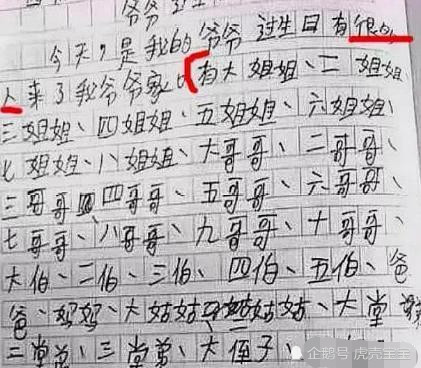 爷爷过生日
今天,是我的爷爷过生日有很多
人来了我爷爷家。有大姐姐、二姐姐、
三姐姐、四姐姐、五姐姐、六姐姐、
七姐姐、八姐姐、大哥哥、二哥哥、
三哥哥、四哥哥、五哥哥、六哥哥、
七哥哥、八哥哥、九哥哥、十哥哥、
大伯、二伯、三伯、四伯、五伯、爸
爸、妈妈、大姑姑、姑姑、大堂
二堂弟、三堂弟、大侄子、
企鹅号 虎壳宝宝